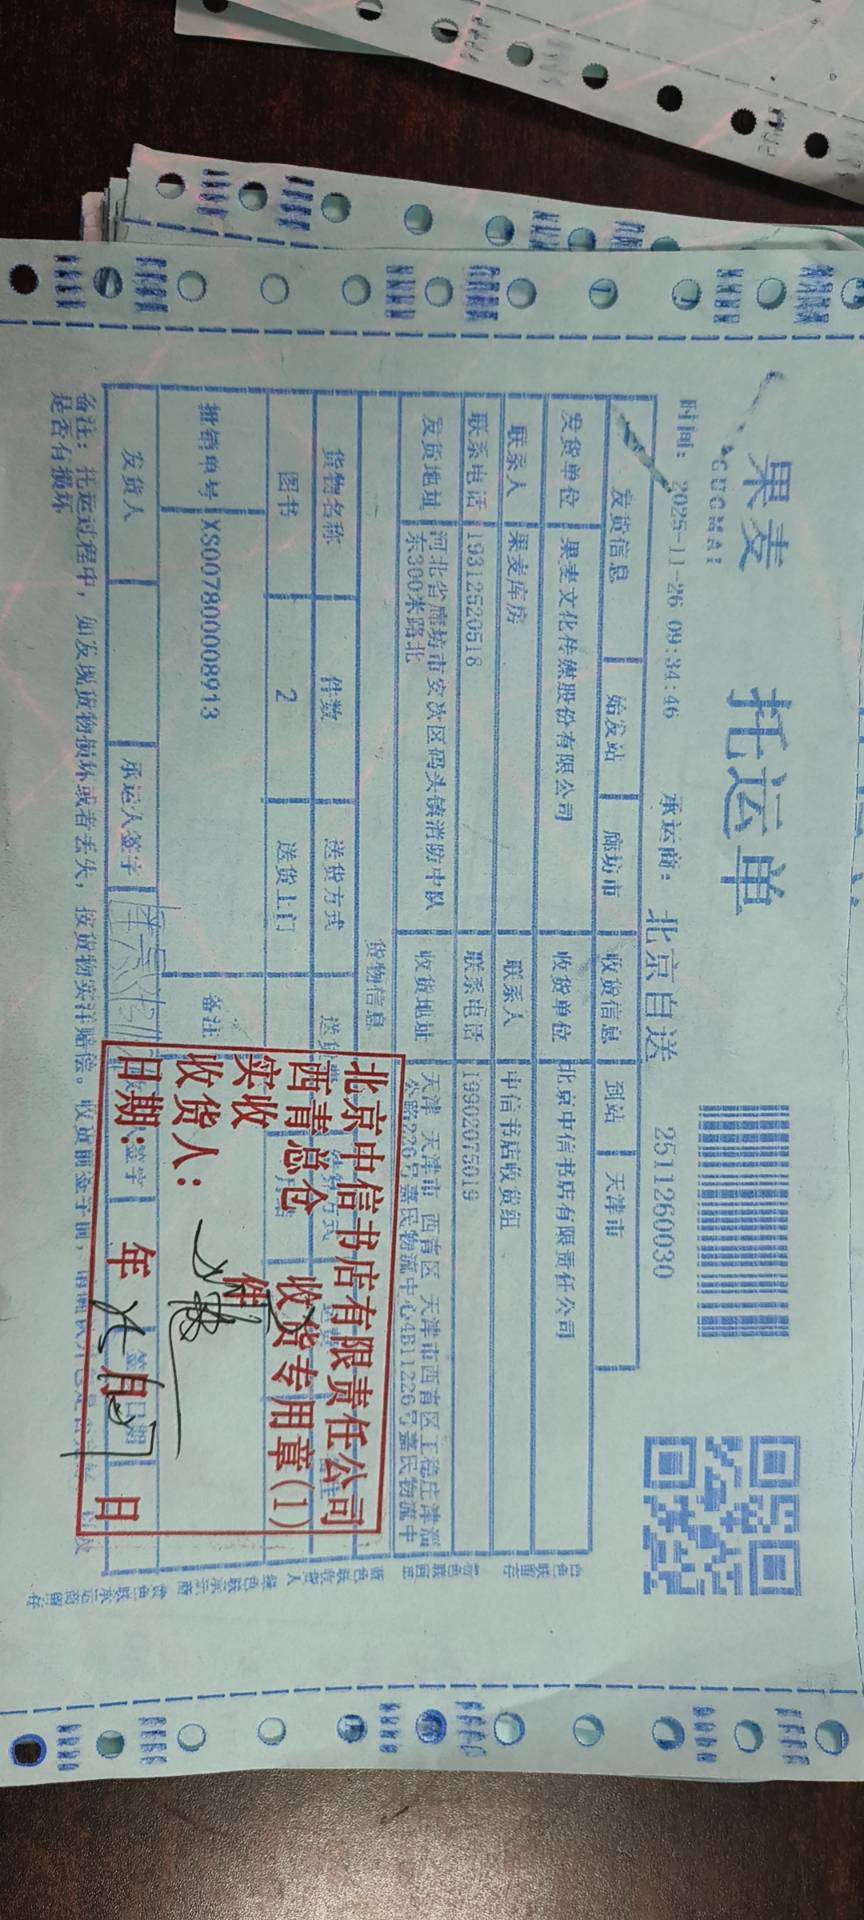 果麦
GUOMAI
托运单
时间: 2025-11-26 09:34:46 承运商: 北京自送 2511260030
发货信息 始发站 廊坊市 收货信息 到站 天津市
发货单位 果麦文化传媒股份有限公司 收货单位 北京中信书店有限责任公司
联系人 果麦库房 联系人 中信书店收货组
联系电话 19312520518 联系电话 19902075019
发货地址 河北省廊坊市安次区码头镇消防中队东300米路北 收货地址 天津 天津市 西青区 天津市西青区王稳庄津淄公路226号嘉民物流中心4B11226号嘉民物流中
货物信息
货物名称 件数 送货方式
图书 2 送货上门
批销单号 XS007800008913 备注
发货人 承运人签字
备注: 托运过程中, 如发现货物损坏或者丢失, 按货物实洋赔偿。收货前签字前,
是否有损坏
北京中信书店有限责任公司
西青总仓 收货专用章(1)
实收 件
收货人:
日期: 年 月 日